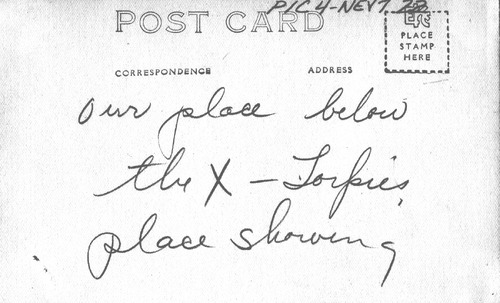 PIC 4-NEV7.28
POST CARD
PLACE
STAMP
HERE
CORRESPONDENCE
ADDRESS
our place below
the X - Torpies
place showing